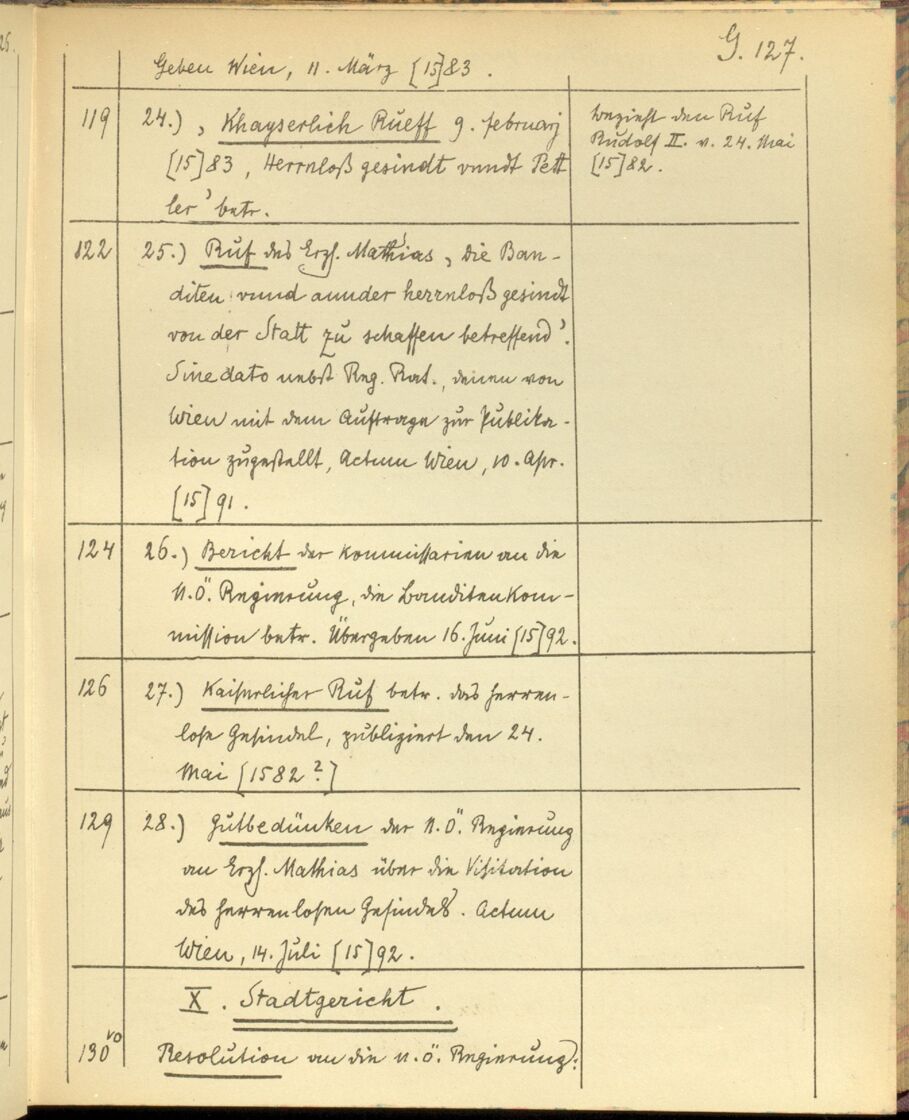 G. 127.
Geben Wien, 11. März [15]83.
119 24.) „Khayserlich Rueff 9. februarj
[15]83, Herrnloß gesindt vnndt Pett
ler" betr.
bezieht den Ruf
Rudolf II. v. 24. Mai
[15]82.
122 25.) Ruf des Erzh. Mathias, „die Ban-
diten vnnd annder herrnloß gesindt
von der Statt zu schaffen betreffend".
Sine dato nebst Reg. Rat., denen von
Wien mit dem Auftrage zur Publika-
tion zugestellt, Actum Wien, 10. Apr.
[15]91.
124 26.) Bericht der Kommissarien an die
N.Ö. Regierung, die Banditenkom-
mission betr. Übergeben 16. Juni [15]92.
126 27.) Kaiserlicher Ruf betr. das herren-
lose Gesindel, publiziert den 24.
Mai [1582?]
129 28.) Gutbedünken der N.Ö. Regierung
an Erzh. Mathias über die Visitation
des herrenlosen Gesindels. Actum
Wien, 14. Juli [15]92.
X. Stadtgericht.
130 vo Resolution an die n.ö. Regierung: